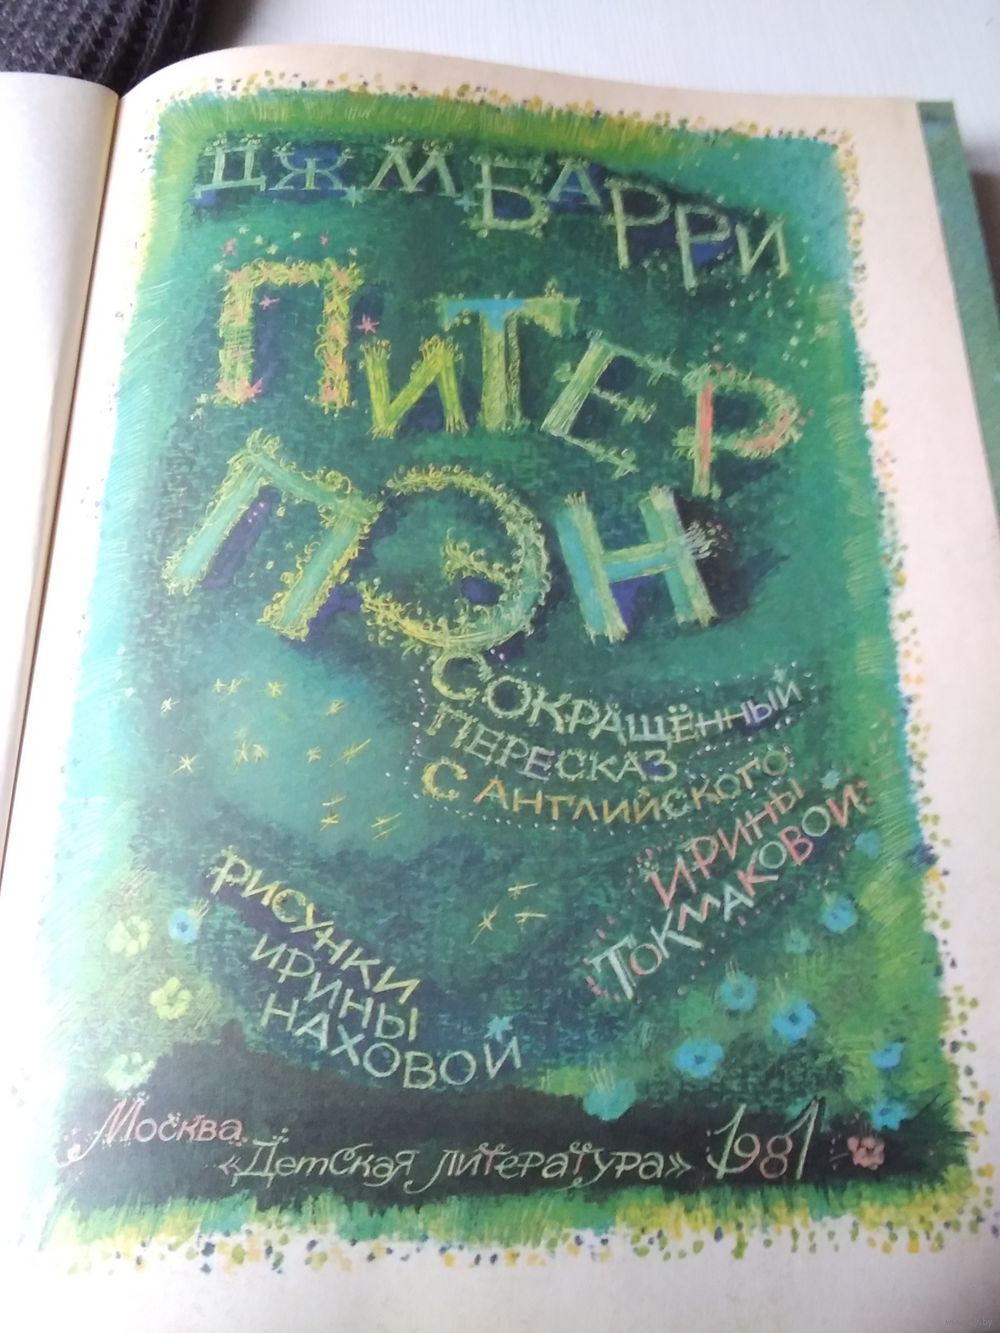 ДЖ. М. БАРРИ
ПИТЕР
ПЭН
СОКРАЩЁННЫЙ
ПЕРЕСКАЗ
С АНГЛИЙСКОГО
ИРИНЫ
ТОКМАКОВОЙ
РИСУНКИ
ИРИНЫ
НАХОВОЙ
Москва
«Детская литература» 1981